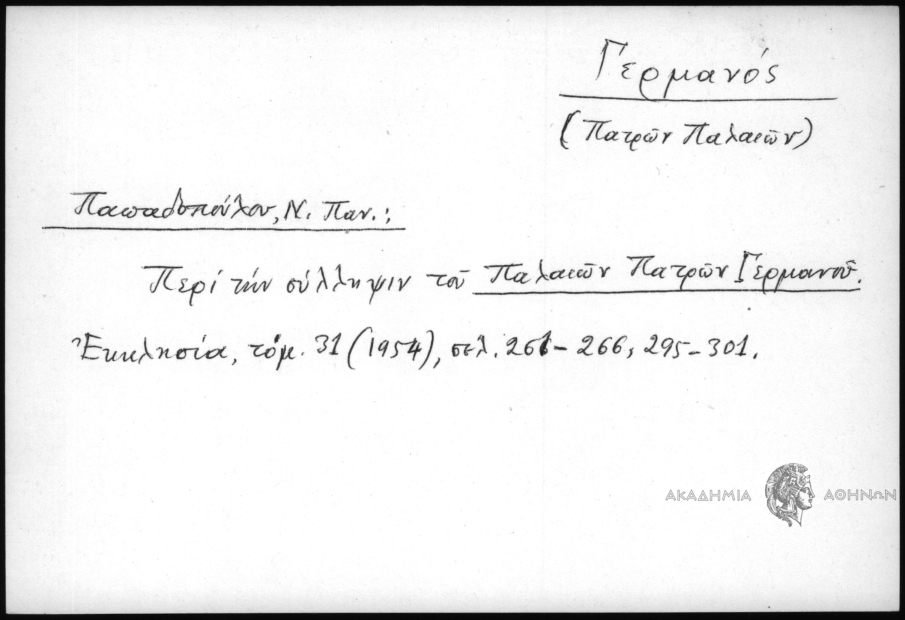 Γερμανός
(Πατρῶν Παλαιῶν)
Παπαδοπούλου, Ν. Παν.:
Περί τήν σύλληψιν τοῦ Παλαιῶν Πατρῶν Γερμανοῦ.
Ἐκκλησία, τόμ. 31 (1954), σελ. 261-266, 295-301.
ΑΚΑΔΗΜΙΑ ΑΘΗΝΩΝ